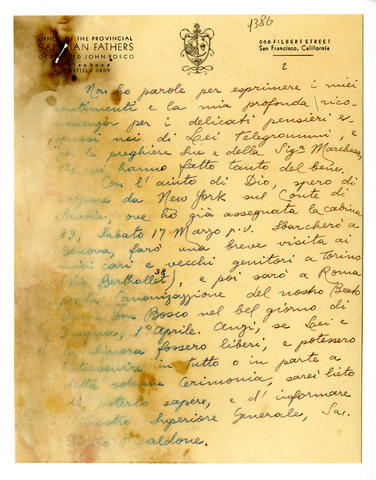 1386
OFFICE OF THE PROVINCIAL
SALESIAN FATHERS
OF BLESSED JOHN BOSCO
Telephone
GARFIELD 0809
666 FILBERT STREET
San Francisco, California
2
Non ho parole per esprimere i miei
sentimenti e la mia profonda rico-
noscenza per i delicati pensieri es-
pressi nei di Lei Telegrammi, e
per le preghiere Sue e della Sigra Marchesa,
che mi hanno fatto tanto del bene.
Con l'aiuto di Dio, spero di
salpare da New York sul Conte di
Savoia, ove ho già assegnata la cabina
83, Sabato 17 Marzo p.v. Sbarcherò a
Genova, farò una breve visita ai
miei cari e vecchi genitori a Torino
(Via Berthollet 39), e poi sarò a Roma
per la Canonizzazione del nostro Beato
Don Bosco nel bel giorno di
Pasqua, 1º Aprile. Anzi, se Lei e
Signora fossero liberi, e potessero
intervenire in tutto o in parte a
detta solenne Cerimonia, sarei lieto
di poterlo sapere, e d'informare
nostro Superiore Generale, Sac.
Ricaldone.